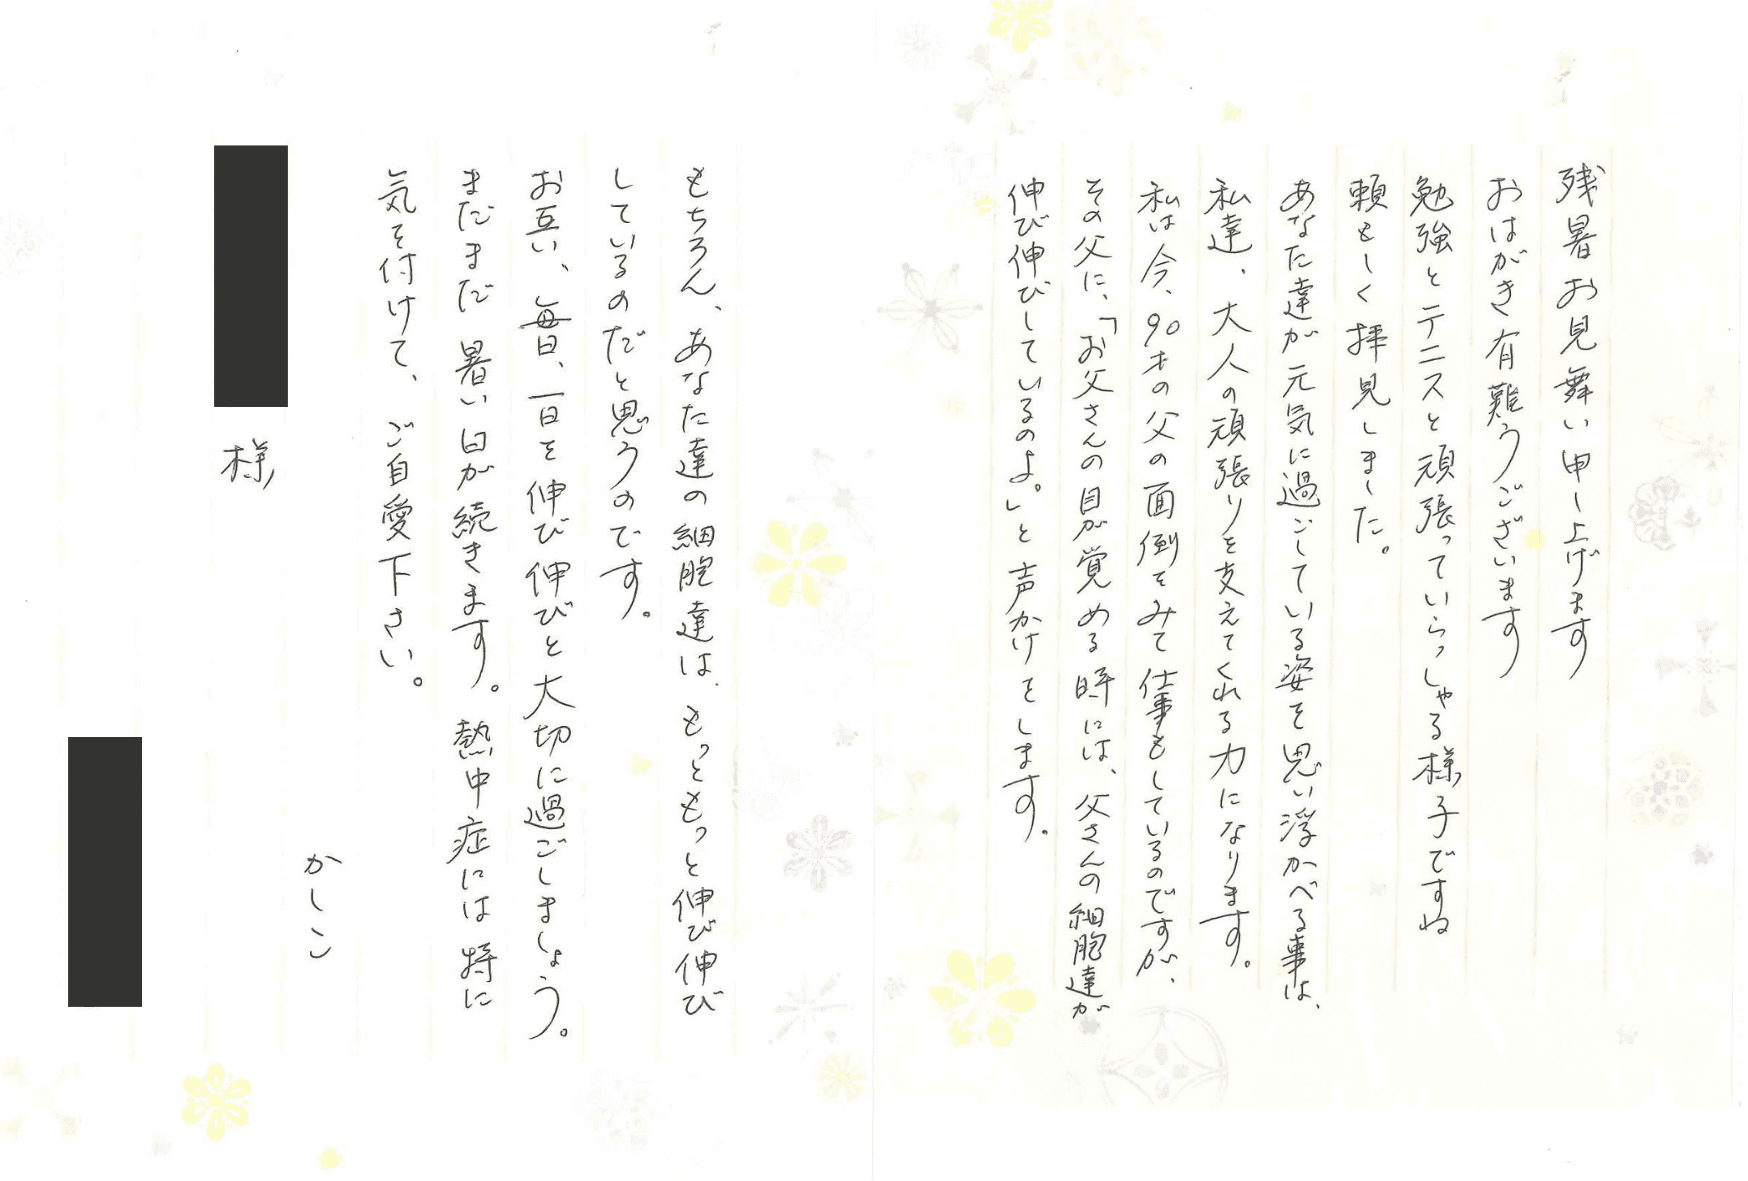 残暑お見舞い申し上げます
おはがき有難うございます
勉強とテニスと頑張っていらっしゃる様子ですね
頼もしく拝見しました。
あなた達が元気に過ごしている姿を思い浮かべる事は、
私達、大人の頑張りを支えてくれる力になります。
私は今、90才の父の面倒をみて仕事もしているのですが、
その父に、「お父さんの目が覚める時には、父さんの細胞達が
伸び伸びしているのよ。」と声かけをします。
もちろん、あなた達の細胞達は、もっともっと伸び伸び
しているのだと思うのです。
お互い、毎日、一日を伸び伸びと大切に過ごしましょう。
まだまだ暑い日が続きます。熱中症には特に
気を付けて、ご自愛下さい。
かしこ
様